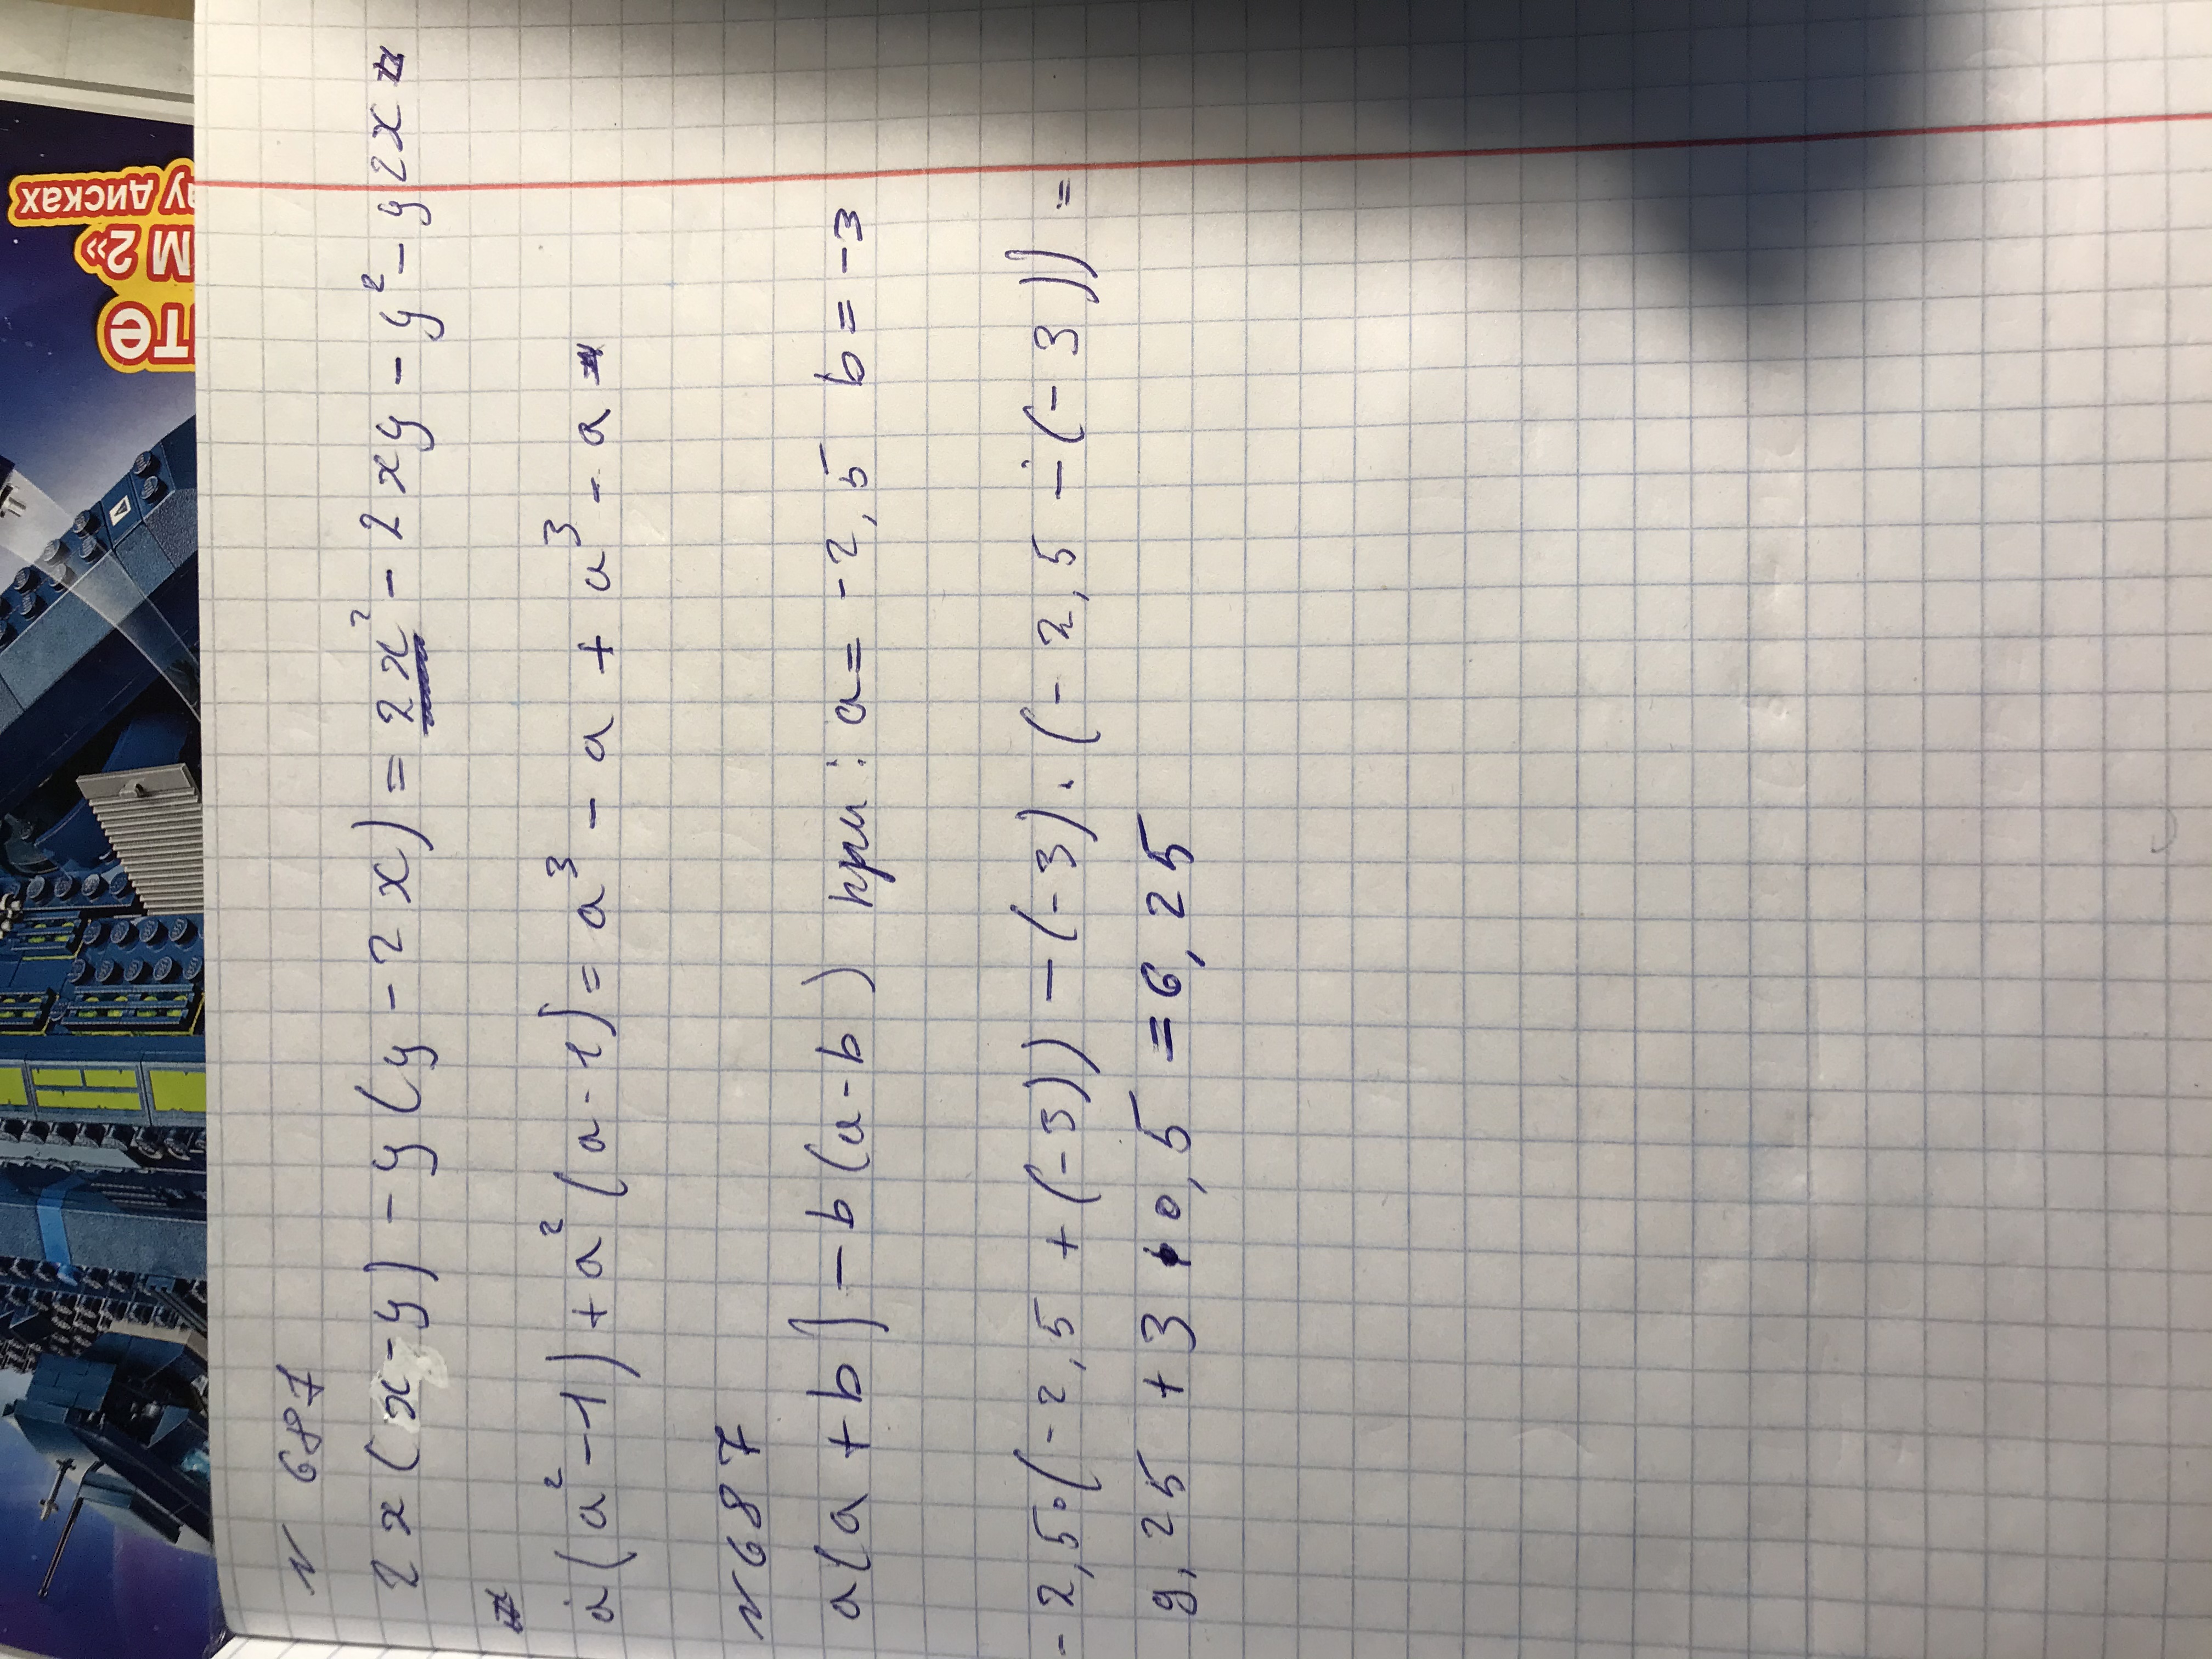 N 687
2x(x-y)-y(y-2x)=2x²-2xy-y²-y2x
a(a²-1)+a²(a-1)=a³-a+a³-a
N 687
a(a+b)-b(a-b) при: a=-2,5 b=-3
-2,5·(-2,5+(-3))-(-3)·(-2,5-(-3))=
9,25+3·0,5=6,25
ТФ
М 2»
ау дисках